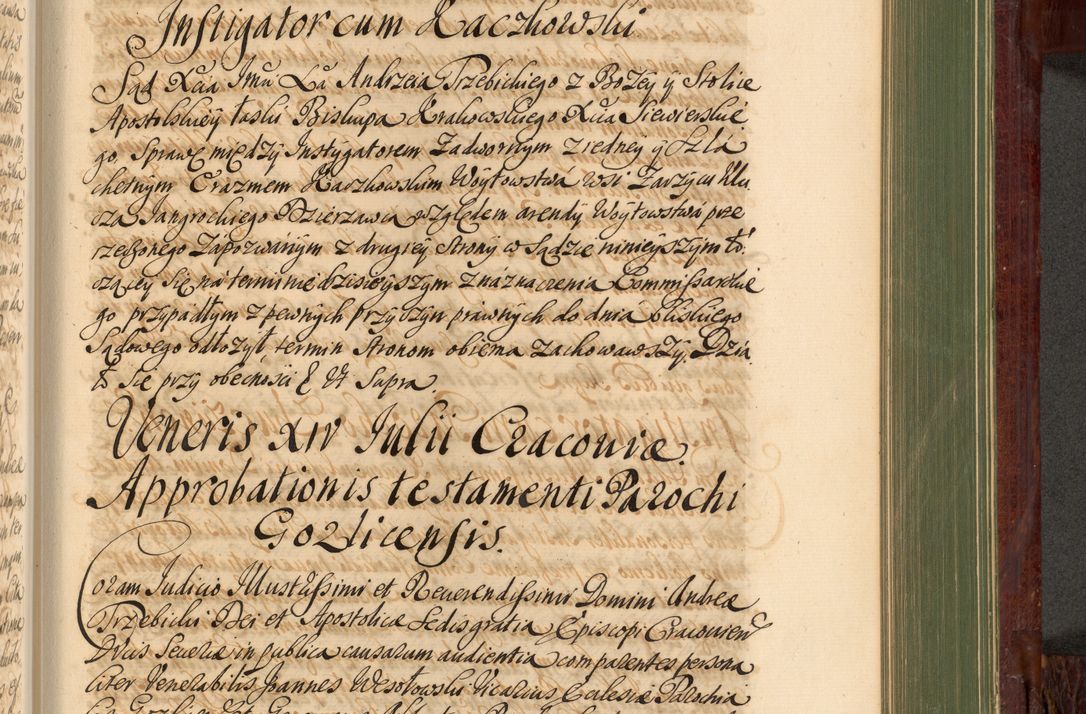 Instigator cum Kaczkowski
Sąd Xcia Imći Xa Andrzeia Trzebickiego z Bożey y Stolice
Apostolskiey łaski Biskupa Krakowskiego Xcia Siewierskie
go, Sprawę między Instygatorem Zadwornym z iedney y Szla
chetnym Erazmem Kaczkowskim Woytowstwa wsi Zarzycu Klu
cza Jangrockiego Dzierzawcą względem arendy Woytowstwa prze
rzeczonego Zapozwanym z drugiey strony w Sądzie ninieyszym to
czącey się na terminie dzisieyszym z náznaczenia Commissarskie
go przypadłym z pewnych przyczyn prawnych do dnia bliskiego
Sądowego odłożył, termin stronom obiema zachowawszy, Dzia
ło się przy obecności & Ut Supra
Veneris XIV Iulii Cracoviæ.
Approbationis testamenti Parochi
Gorlicensis.
Coram Iudicio Illustrissimi et Reverendissimi Domini Andreæ
Trzebicki Dei et Apostolicæ Sedis gratia Episcopi Cracovien
Ducis Severiæ in publica causarum audientia comparentes persona
liter Venerabilis Joannes Wesołowski Vicarius Ecclesiæ Parochia